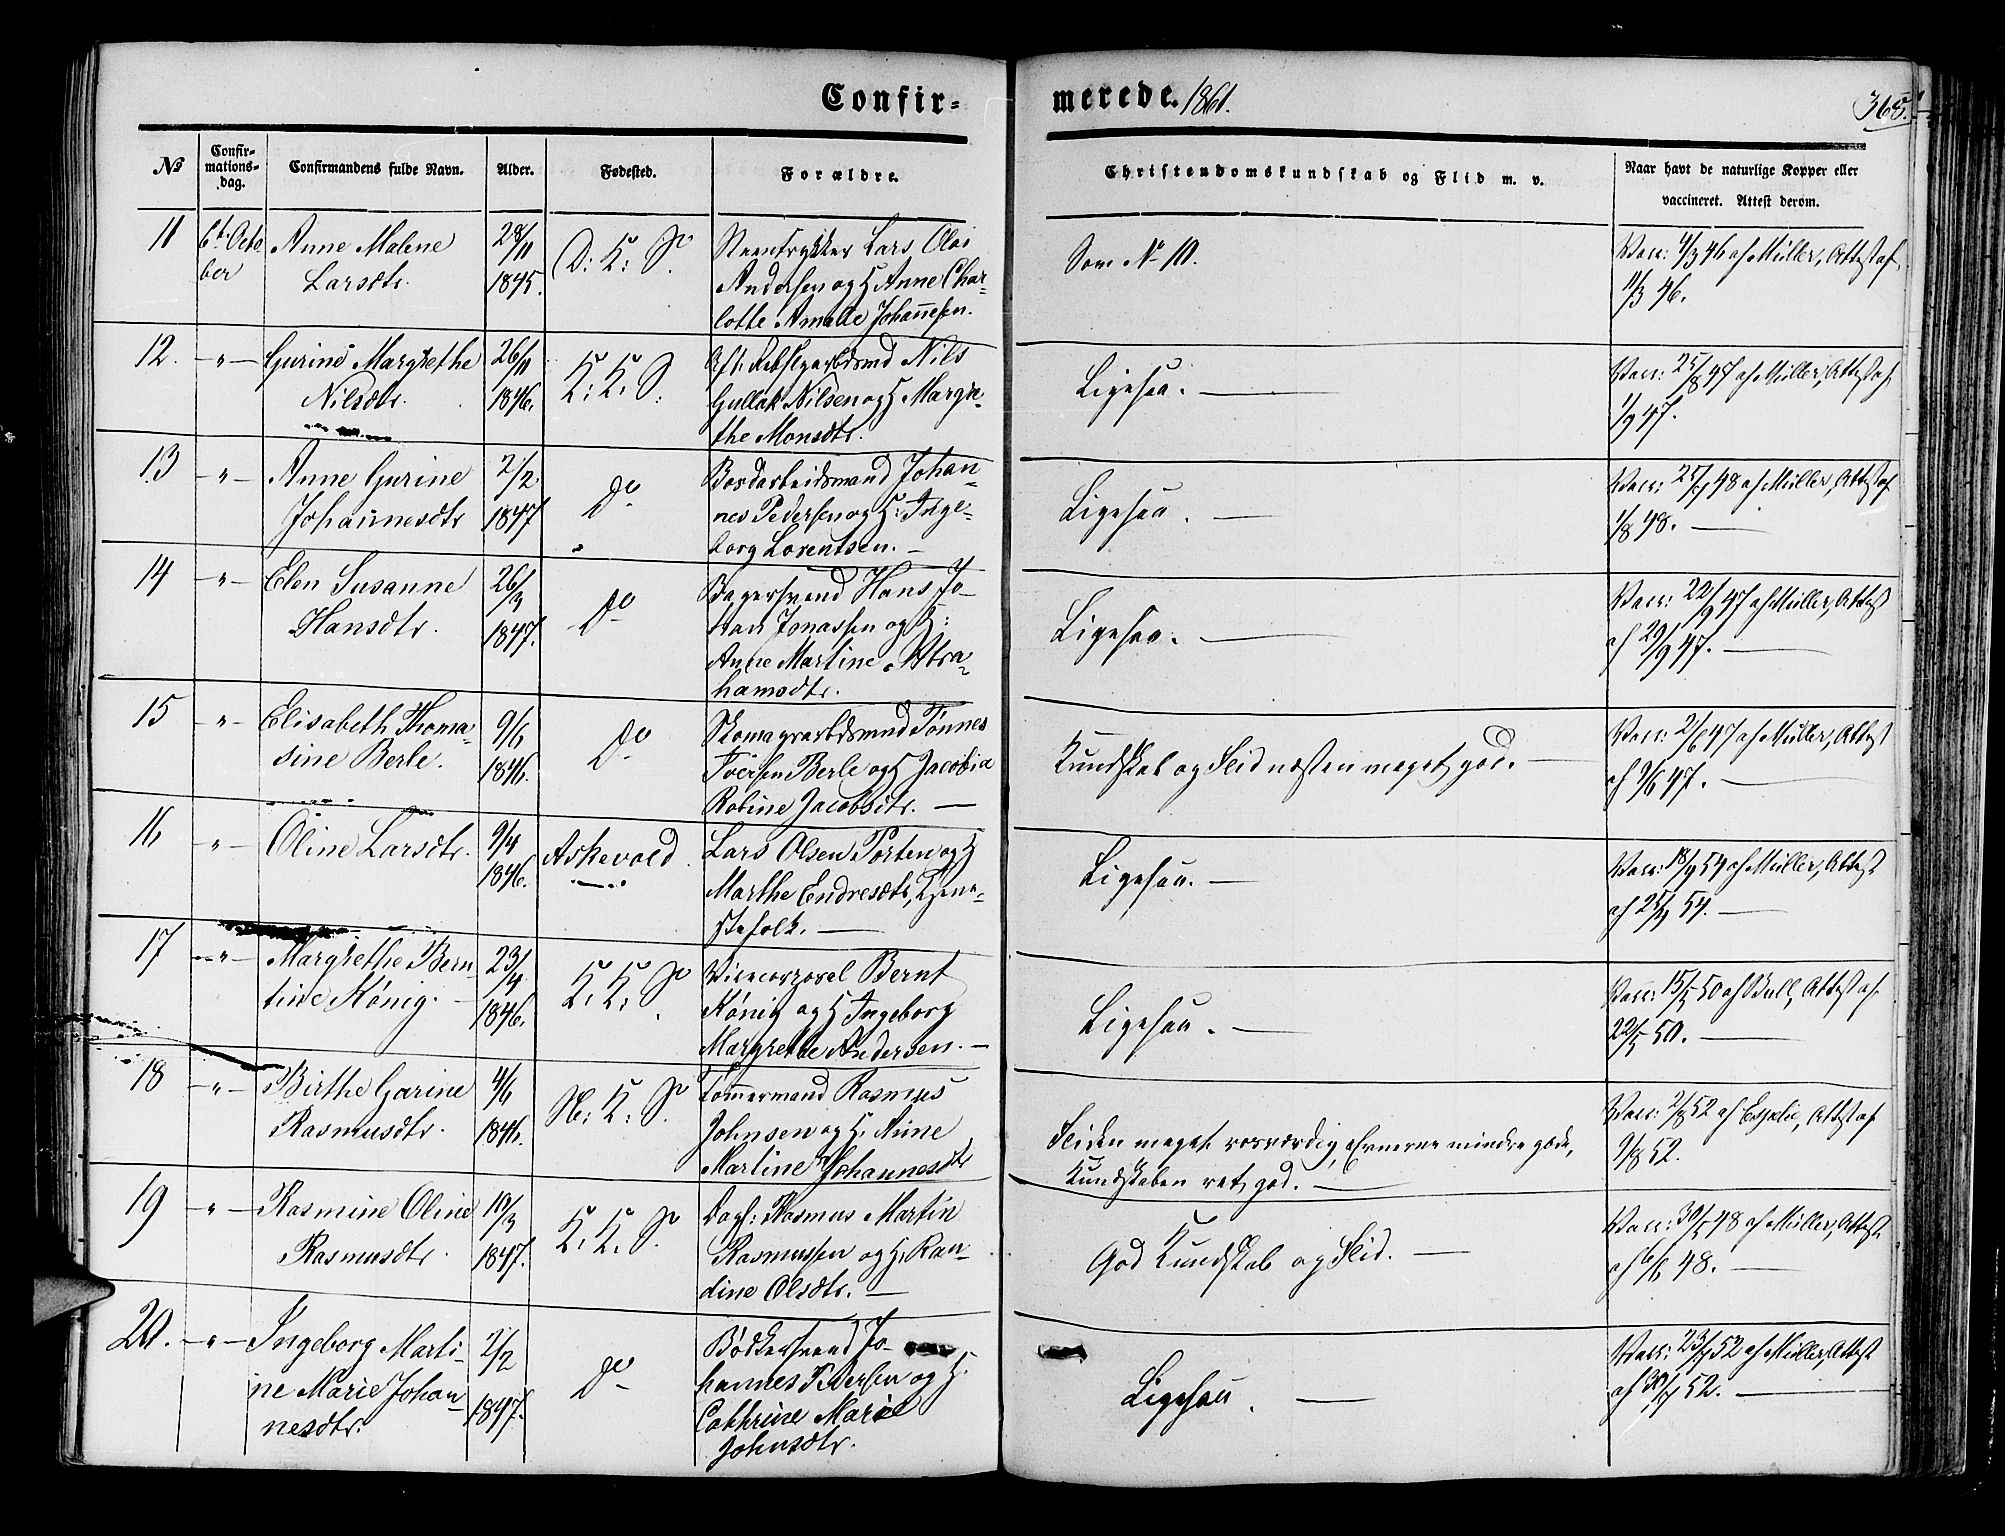 Confir-
merede. 1861.
368.
No
Confir-
mations-
dag.
Confirmandens fulde Navn.
Alder.
Fødested.
Forældre.
Christendomskundskab og Flid m. v.
Naar havt de naturlige Kopper eller
vaccineret. Attest derom.
11
6t Octo
ber
Anne Malene
Larsdtr.
28/11
1845.
D: K: S
Lars Olai
Andersen og H Anne Char-
lotte Amalie Johannesen.
Som No 10.
Vacc: 4/3 46 af Müller, Attest af
11/3 46.
12.
-"-
Gurine Margrethe
Nilsdtr.
26/11
1846.
K: K: S.
Nils
Gullak Nilsen og H Margre-
the Monsdtr.
Ligesaa. —
Vacc: 25/8 47 af Müller, Attest af
1/9 47.
13
-"-
Anne Gurine
Johannesdtr
2/2
1847
Do
Bordarbeidsmand Johan-
nes Pedersen og H: Inge-
borg Lorentsen. —
Ligesaa. —
48 af Müller, Attest af
1/8 48. —
14
-"-
Elen Susanne
Hansdtr.
26/3
1847.
Do
Bagersvend Hans Jo-
Jonassen og H:
Anne Martine Abra-
hamsdtr.
Ligesaa. —
Vacc: 22/9 47 af Müller, Attest
af 29/9 47. —
15
-"-
Elisabeth Thoma-
sine Berle.
9/6
1846.
Do
Tønnes
Iversen Berle og H Jacobia
Robine Jacobsdtr. —
Kundskab og Flid næsten meget god. —
Vacc: 2/6 47 af Müller, Attest
af 9/6 47. —
16
-"-
Oline Larsdtr.
9/4
1846.
Askevold.
Lars Olsen Porten og H
Marthe Endresdtr, Tjene-
stefolk. —
Ligesaa. —
Vacc: 18/9 54 af Müller, Attest
af 25/9 54. —
17
-"-
Margrethe Bern-
tine König.
23/4
1846.
K. K: S
Vicecorporal Bernt
König og H Ingeborg
Margrethe Andersen. —
Ligesaa. —
Vacc: 15/5 50 af Bull, Attest af
22/5 50. —
18
-"-
Birthe Garine
Rasmusdtr.
4/6
1846.
N: K: S
Tømmermand Rasmus
Johnsen og H. Anne
Martine Johannesdtr
Fliden meget rosværdig, Evnerne mindre gode,
Kundskaben ret god. —
Vacc: 2/8 52 af Attest af
9/8 52.
19
-"-
Rasmine Oline
Rasmusdtr.
10/3
1847.
K. K. S.
Dagl: Rasmus Martin
Rasmussen og H. Ran-
dine Olsdtr. —
God Kundskab og Flid. —
48 af Müller, Attest
af 6/6 48. —
20.
-"-
Ingeborg Marti-
ne Marie Johan-
nesdtr.
2/2
1847.
Do
Bødkersvend Jo-
hannes Pedersen og H.
Cathrine Marie
Johnsdtr.
Ligesaa. —
52 af Müller, Attest
52. —